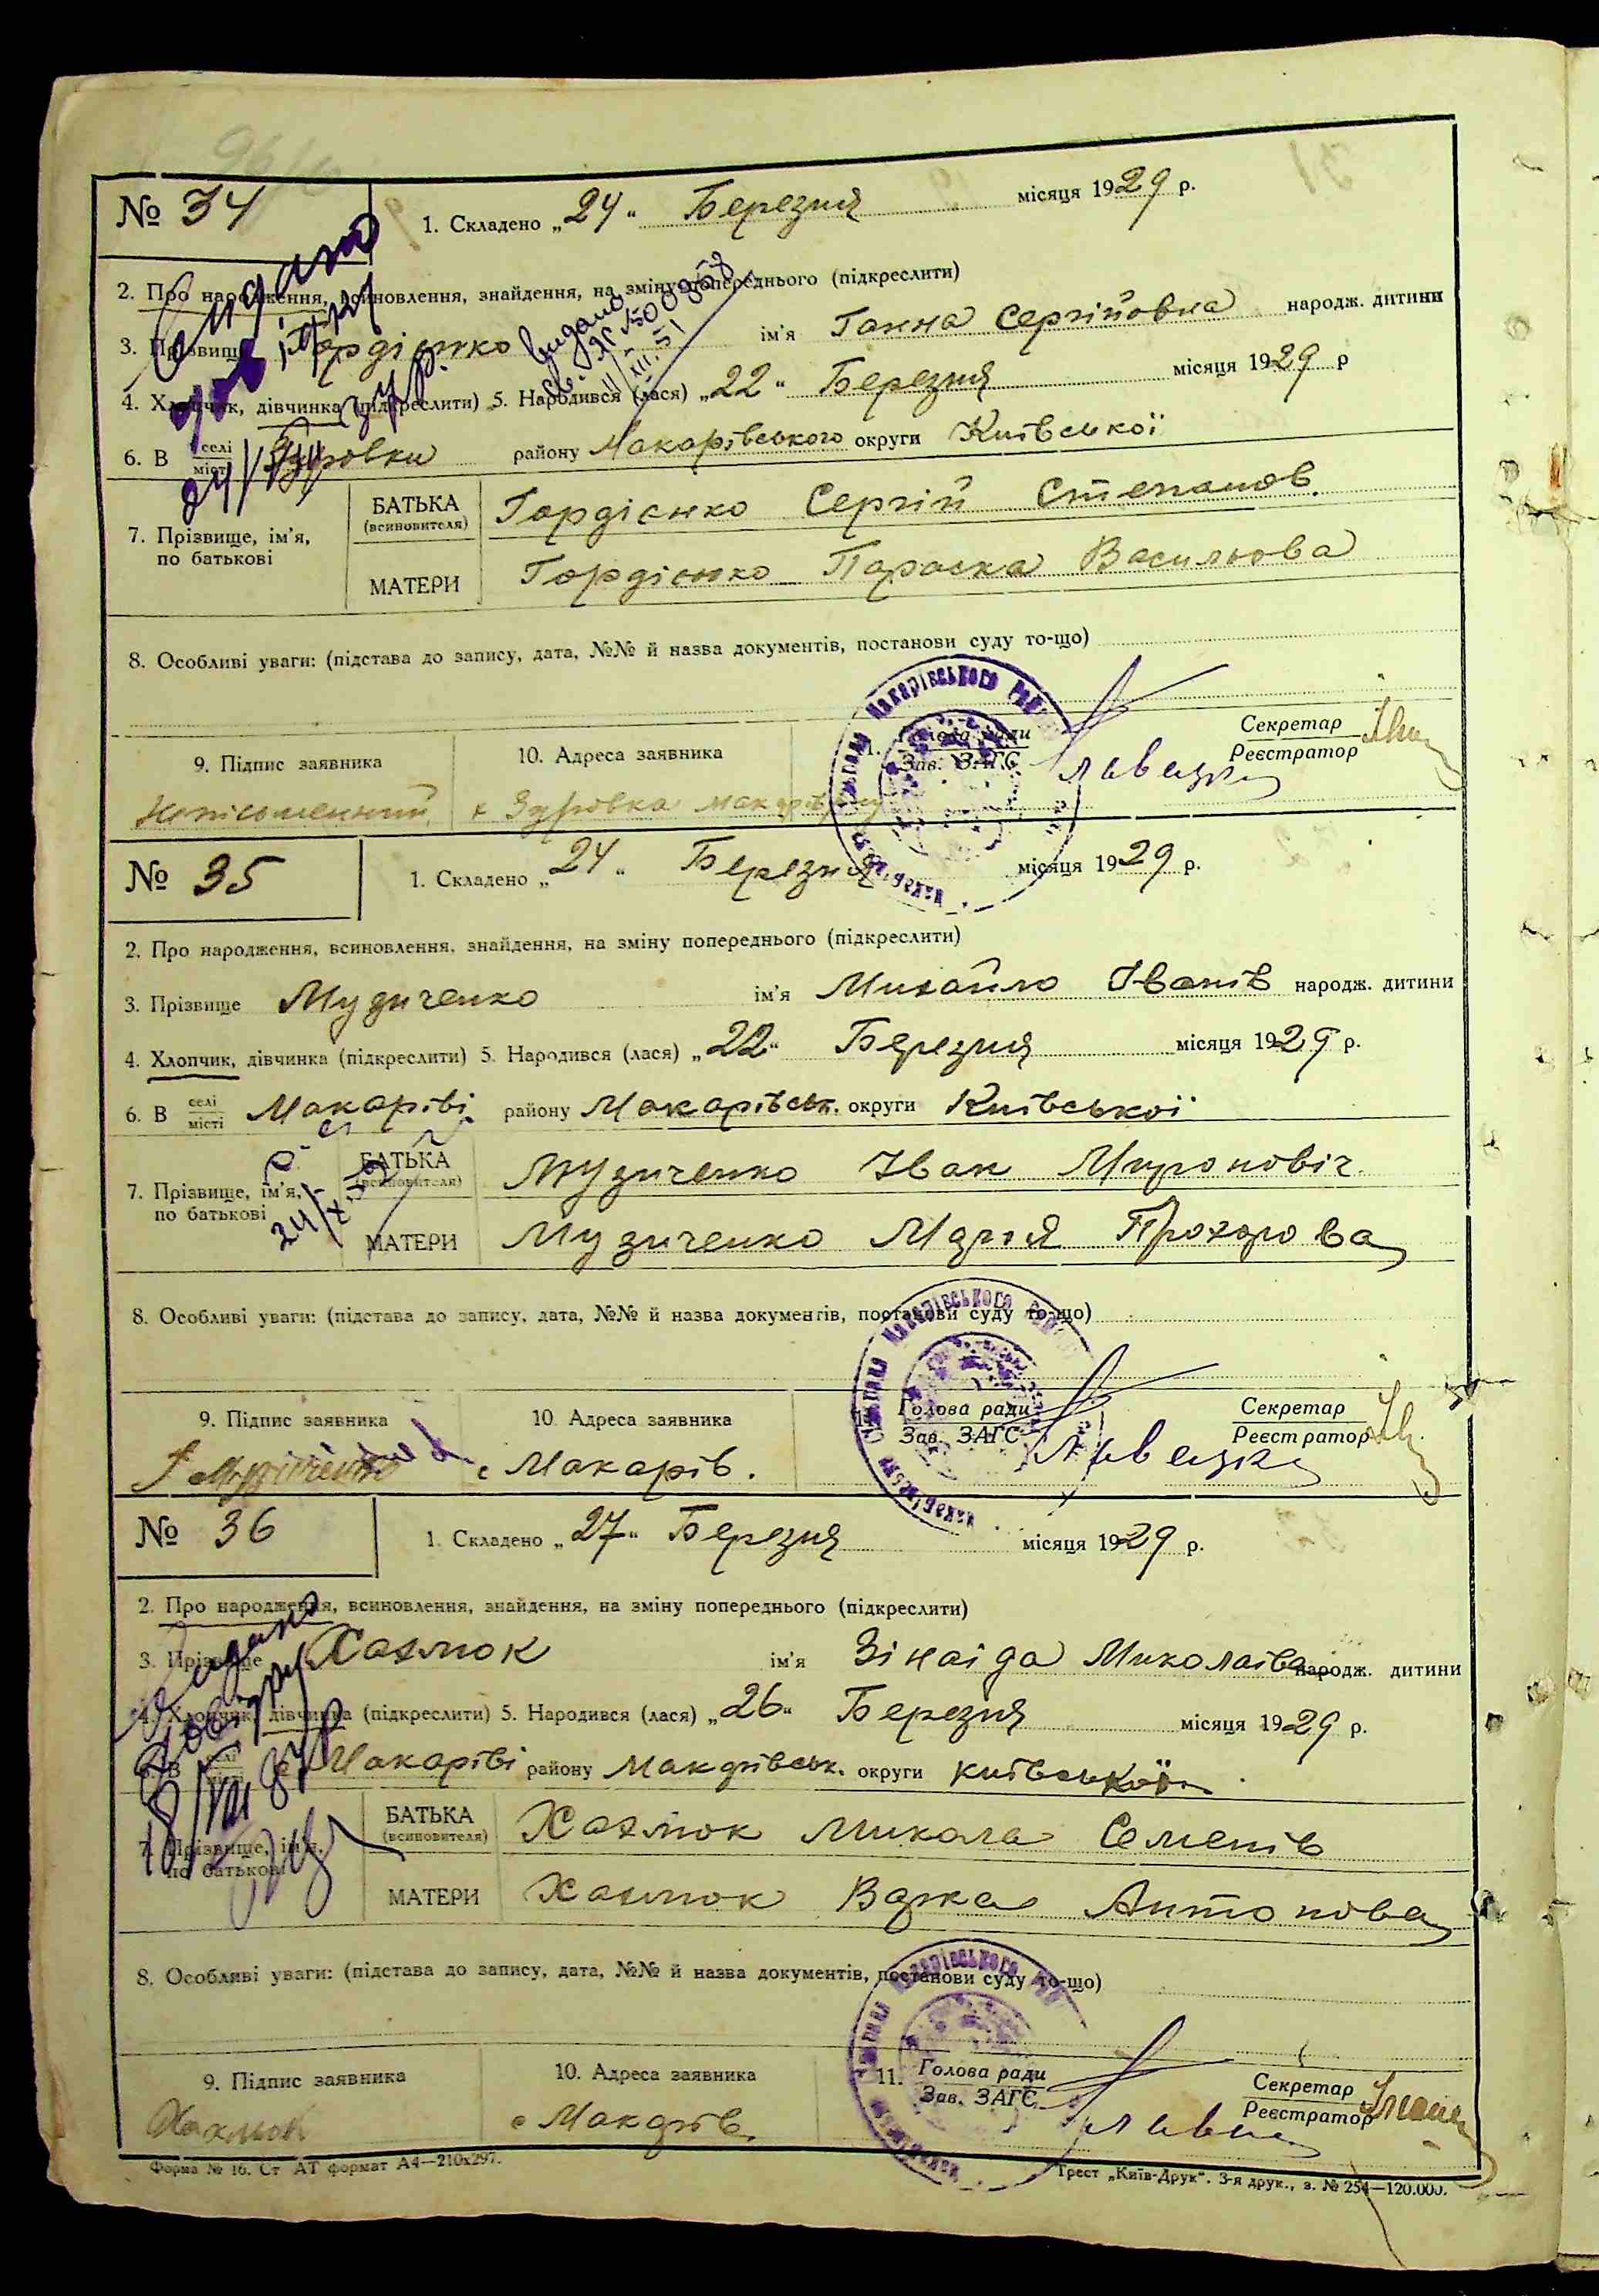 № 34
1. Складено „24“ Березня місяця 1929 р.
2. Про народження, всиновлення, знайдення, на зміну попереднього (підкреслити)
3. Прізвище Гордієнко ім'я Ганна Сергійовна народж. дитини
4. Хлопчик, дівчинка (підкреслити) 5. Народився (лася) „22“ Березня місяця 1929 р
6. В селі місті районy Макарівського округи Київської
7. Прізвище, ім'я, по батькові
БАТЬКА (всиновителя) Гордієнко Сергій Степанов.
МАТЕРИ Гордієнко Параска Васильова
8. Особливі уваги: (підстава до запису, дата, №№ й назва документів, постанови суду то-що)
9. Підпис заявника 10. Адреса заявника 11. Голова ради Зав. ЗАГС Секретар Реєстратор
Видано
№ 35
1. Складено „24“ Березня місяця 1929 р.
2. Про народження, всиновлення, знайдення, на зміну попереднього (підкреслити)
3. Прізвище Музиченко ім'я Михайло Іванів народж. дитини
4. Хлопчик, дівчинка (підкреслити) 5. Народився (лася) „22“ Березня місяця 1929 р.
6. В селі місті Макаріві району Макарівськ. округи Київської
7. Прізвище, ім'я, по батькові
БАТЬКА (всиновителя) Музиченко Іван Миронович
МАТЕРИ Музиченко Марія Прохорова
8. Особливі уваги: (підстава до запису, дата, №№ й назва документів, постанови суду то-що)
9. Підпис заявника 10. Адреса заявника 11. Голова ради Зав. ЗАГС Секретар Реєстратор
с Макарів.
№ 36
1. Складено „27“ Березня місяця 1929 р.
2. Про народження, всиновлення, знайдення, на зміну попереднього (підкреслити)
3. Прізвище Хахлюк ім'я Зінаіда Миколаівa народж. дитини
4. Хлопчик, дівчинка (підкреслити) 5. Народився (лася) „26“ Березня місяця 1929 р.
6. В селі місті Макаріві району Макарівськ. округи Київської
7. Прізвище, ім'я, по батькові
БАТЬКА (всиновителя) Хахлюк Микола Семенів
МАТЕРИ Хахлюк Варка Антонова
8. Особливі уваги: (підстава до запису, дата, №№ й назва документів, постанови суду то-що)
9. Підпис заявника 10. Адреса заявника 11. Голова ради Зав. ЗАГС Секретар Реєстратор
Хахлюк с Макарів
Форма № 16. Ст АТ формат А4—210х297. Трест „Київ-Друк“. 3-я друк., з. № 254—120.000.